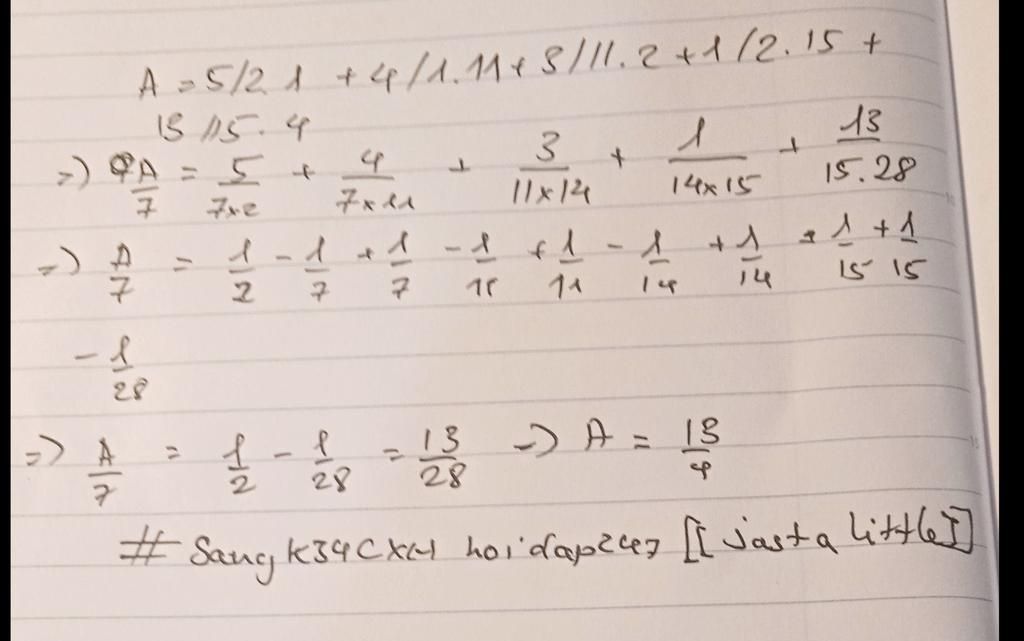 A = 5/2.1 + 4/1.11 + 3/11.2 + 1/2.15 +
13/15.4
=) A/7 = 5/7x2 + 4/7x11 + 3/11x14 + 1/14x15 + 13/15.28
=) A/7 = 1/2 - 1/7 + 1/7 - 1/11 + 1/11 - 1/14 + 1/14 - 1/15 + 1/15
- 1/28
=) A/7 = 1/2 - 1/28 = 13/28 =) A = 13/4
# Sang hoidap247 [[ Just a little ]]